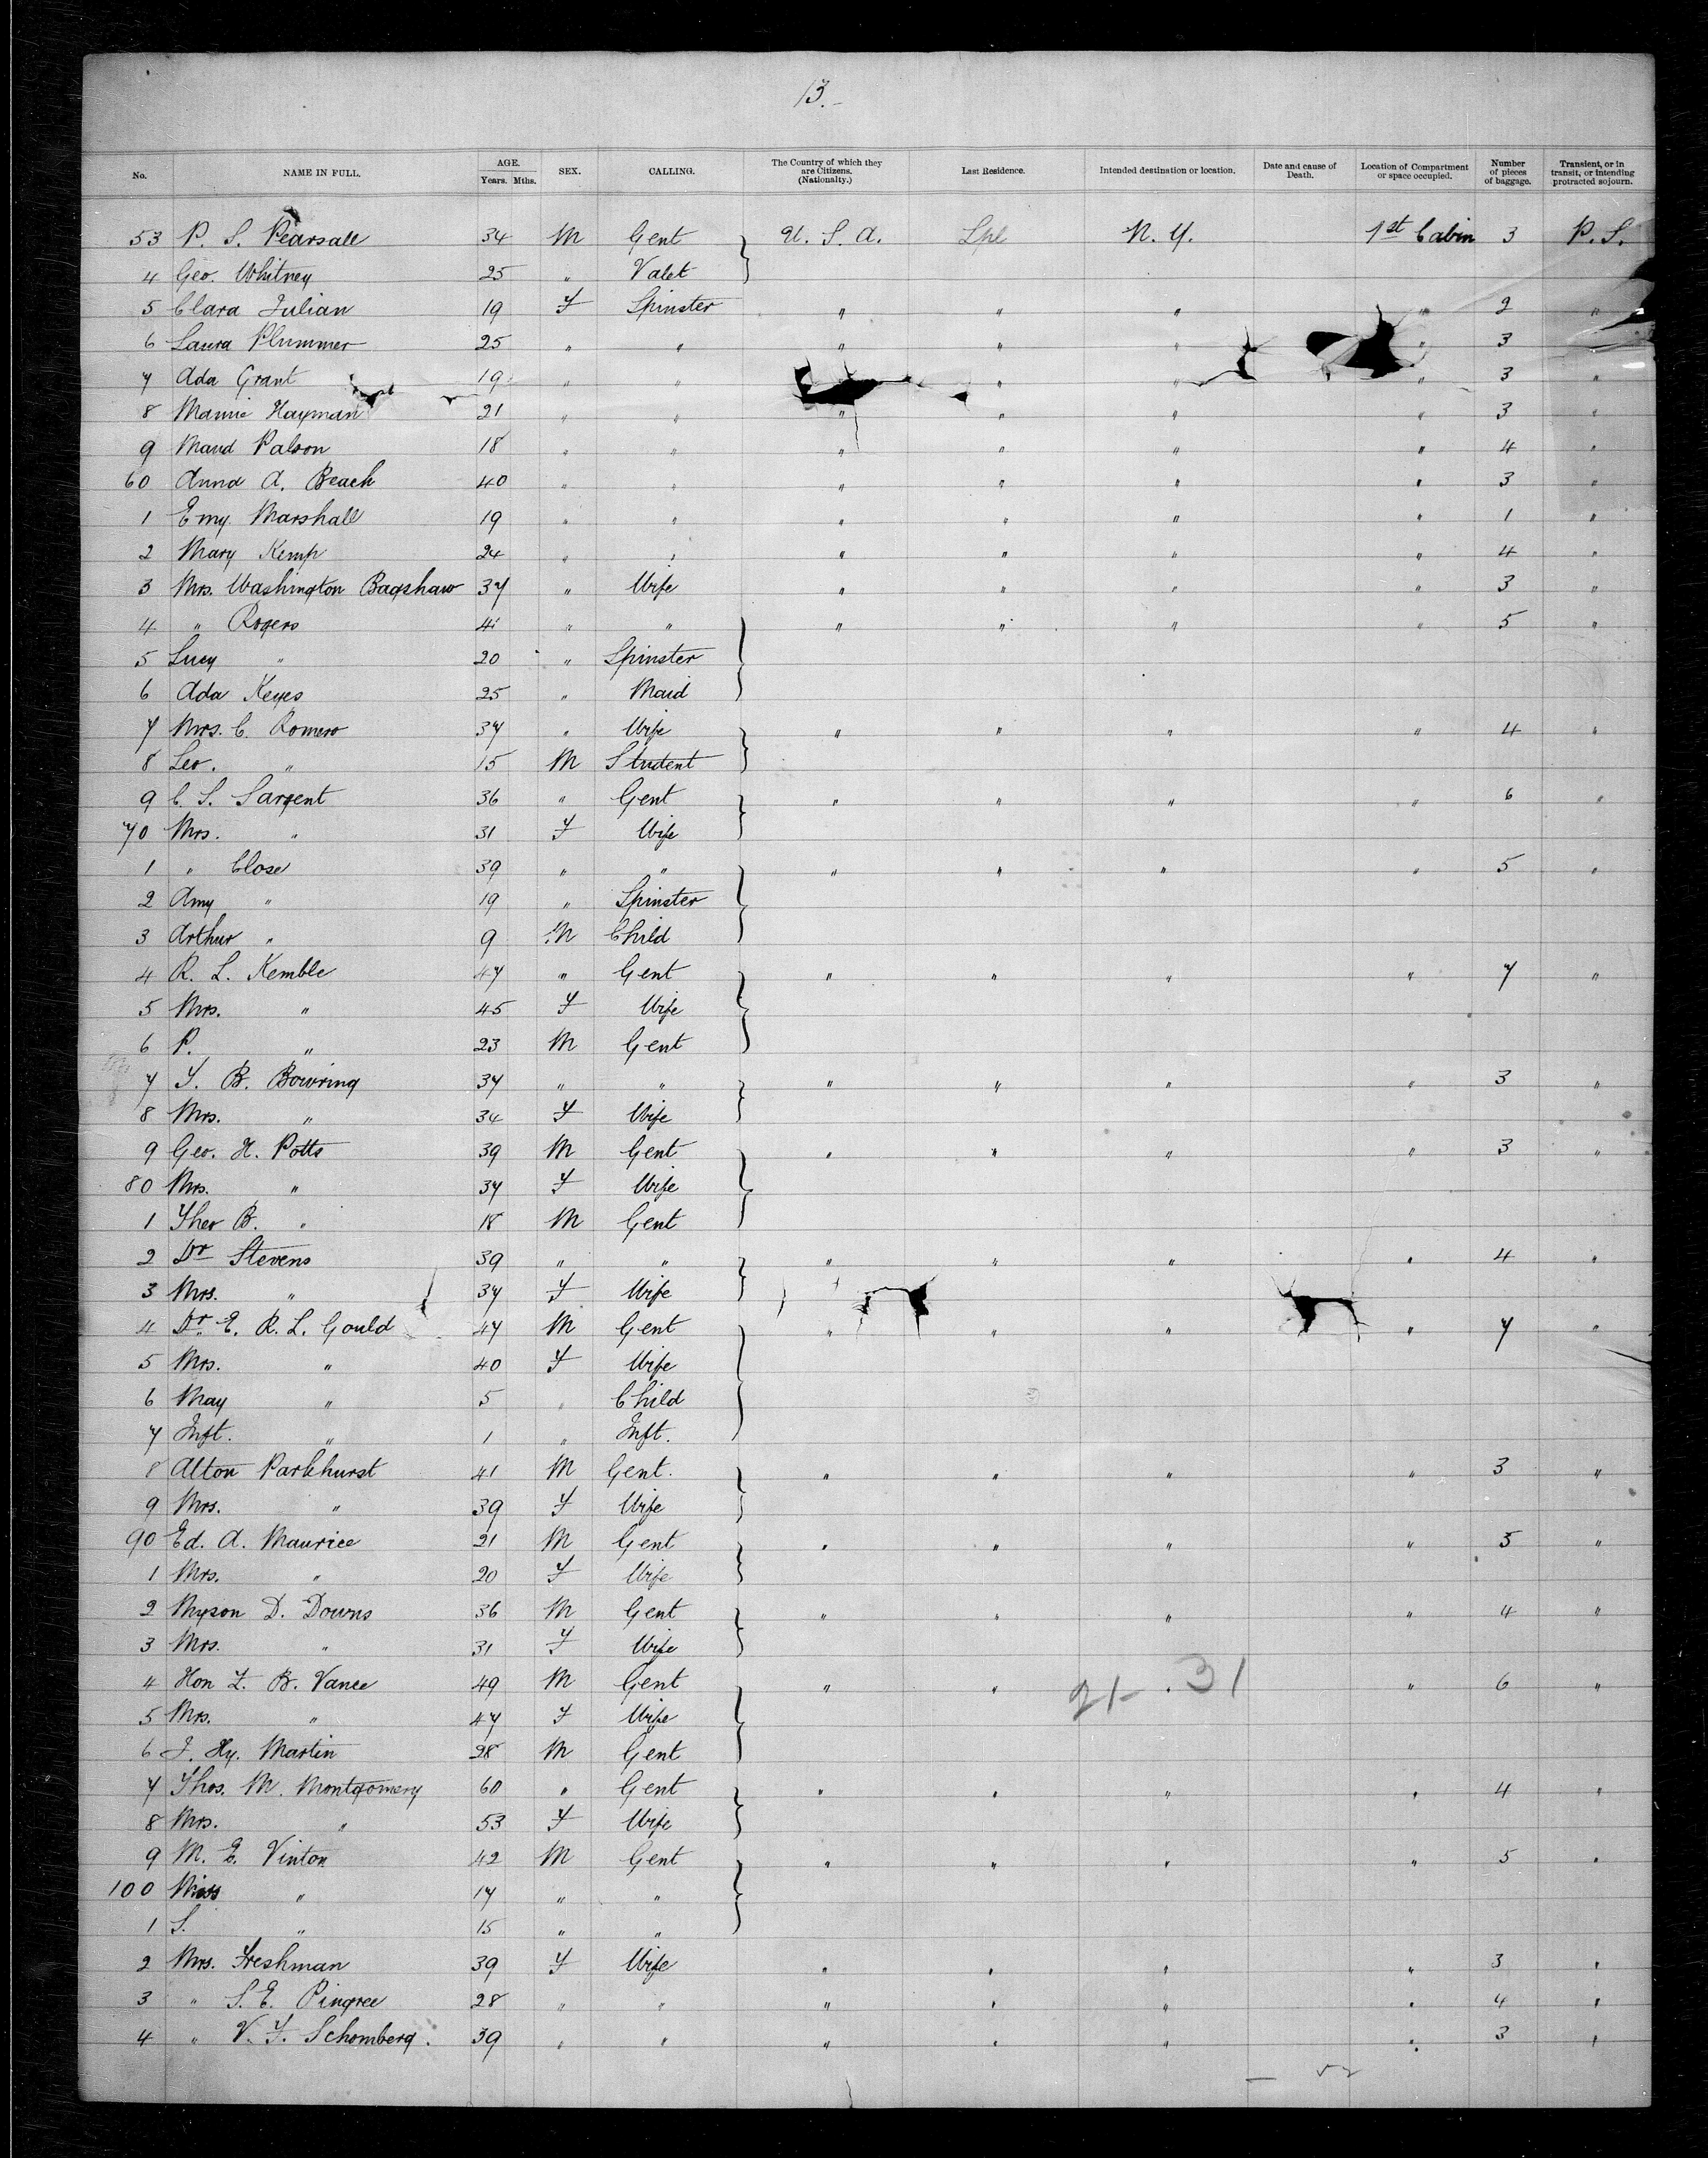 13.-
No. NAME IN FULL. AGE. Years. Mths. SEX. CALLING. The Country of which they are Citizens. (Nationality.) Last Residence. Intended destination or location. Date and cause of Death. Location of Compartment or space occupied. Number of pieces of baggage. Transient, or in transit, or intending protracted sojourn.
53 P. S. Pearsall 34 M Gent U. S. A. Lpl N. Y. 1st Cabin 3 P. S.
4 Geo. Whitney 25 " Valet
5 Clara Julian 19 F Spinster " " " " 2 "
6 Laura Plummer 25 " " " " " " 3
7 Ada Grant 19 " " " " " 3 "
8 Mamie Hayman 21 " " " " " " 3 "
9 Maud Palson 18 " " " " " " 4 "
60 Anna A. Beach 40 " " " " " " 3 "
1 Emy Marshall 19 " " " " " " 1 "
2 Mary Kemp 24 " " " " " " 4 "
3 Mrs. Washington Bagshaw 37 " Wife " " " " 3 "
4 " Rogers 41 " " " " " " 5 "
5 Lucy " 20 " Spinster
6 Ada Keyes 25 " Maid
7 Mrs. C. Romero 37 " Wife " " " " 4 "
8 Leo. " 15 M Student
9 C. S. Sargent 36 " Gent " " " " 6 "
70 Mrs. " 31 F Wife
1 " Close 39 " " " " " " 5 "
2 Amy " 19 " Spinster
3 Arthur " 9 M Child
4 R. L. Kemble 47 " Gent " " " " 7 "
5 Mrs. " 45 F Wife
6 P. " 23 M Gent
7 T. B. Bowring 37 " " " " " " 3 "
8 Mrs. " 34 F Wife
9 Geo. H. Potts 39 M Gent " " " " 3 "
80 Mrs. " 37 F Wife
1 Theo B. " 18 M Gent
2 Dr Stevens 39 " " " " " " 4 "
3 Mrs. " 37 F Wife
4 Dr. E. R. L. Gould 47 M Gent " " " " 7 "
5 Mrs. " 40 F Wife
6 May " 5 " Child
7 Inft. " 1 " Inft.
8 Alton Parkhurst 41 M Gent. " " " " 3 "
9 Mrs. " 39 F Wife
90 Ed. A. Maurice 21 M Gent " " " " 5 "
1 Mrs. " 20 F Wife
2 Myson D. Downs 36 M Gent " " " " 4 "
3 Mrs. " 31 F Wife
4 Hon Z. B. Vance 49 M Gent " " 21- " 31 " 6 "
5 Mrs. " 47 F Wife
6 J. Hy. Martin 28 M Gent
7 Thos. M. Montgomery 60 " Gent " " " " 4 "
8 Mrs. " 53 F Wife
9 M. E. Vinton 42 M Gent " " " " 5 "
100 Miss " 17 " "
1 S. " 15 " "
2 Mrs. Freshman 39 F Wife " " " " 3 "
3 " S. E. Pingree 28 " " " " " " 4 "
4 " V. F. Schomberg. 39 " " " " " " 3 "
— 52